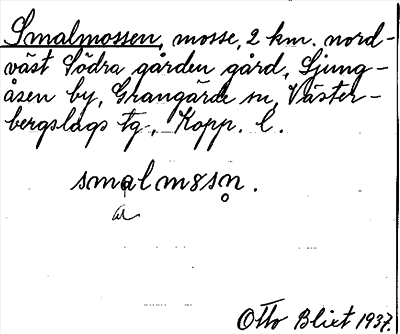 Smalmossen, mosse, 2 km. nord-
väst Södra gården gård, Ljung-
åsen by, Grangärde sn, Väster-
bergslags tg., Kopp. l.
smalmåsn.
Otto Blixt 1937.